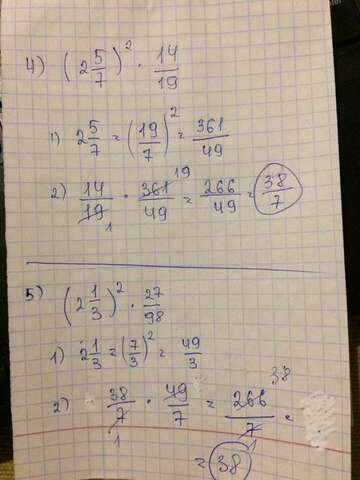 4) (2 5/7)² · 14/19
1) 2 5/7 = (19/7)² = 361/49
2) 14/19 · 361/49 = 266/49 = 38/7
19
1
5) (2 1/3)² · 27/98
1) 2 1/3 = (7/3)² = 49/3
2) 38/7 · 49/7 = 266/7 =
38
1
= 38